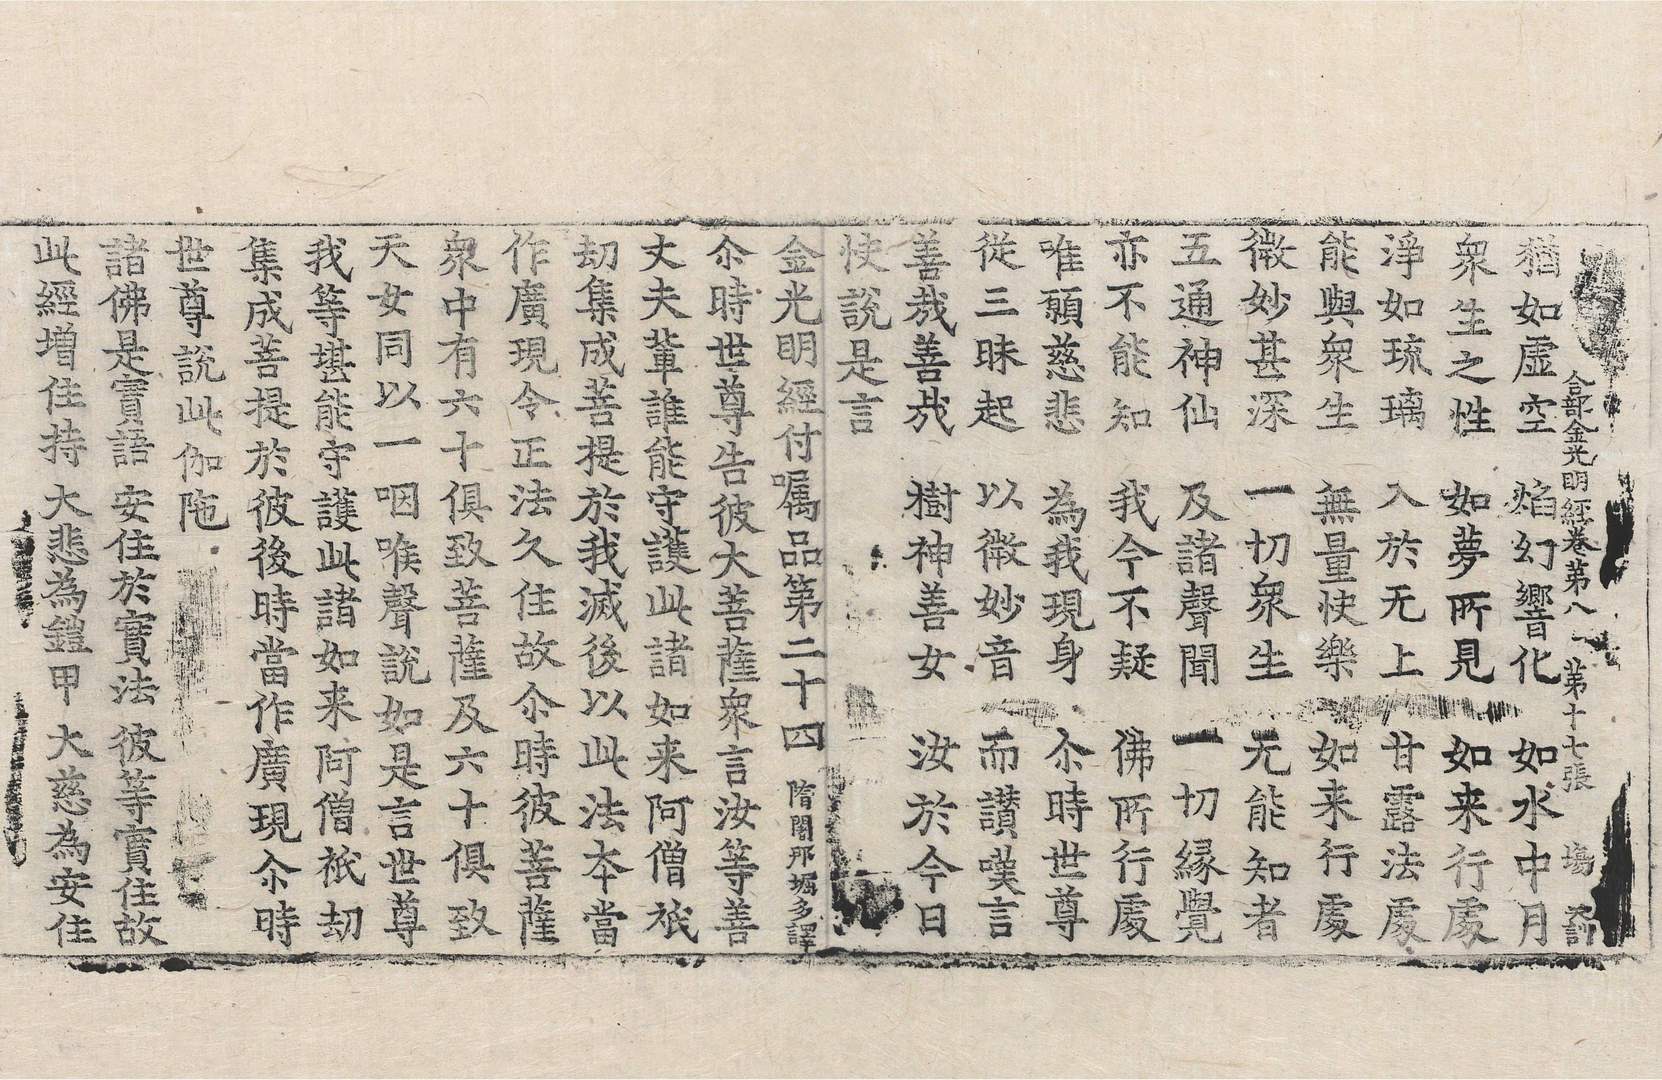 合部金光明經卷第八　第十七張　場
猶如虛空　焰幻響化　如水中月
衆生之性　如夢所見　如来行處
淨如琉璃　入於无上　甘露法處
能與衆生　無量快樂　如来行處
微妙甚深　一切衆生　无能知者
五通神仙　及諸聲聞　一切緣覺
亦不能知　我今不疑　佛所行處
唯願慈悲　為我現身　尒時世尊
従三昧起　以微妙音　而讃嘆言
善㢤善㢤　樹神善女　汝於今日
快說是言
金光明經付嘱品第二十四　隋闍那堀多譯
尒時世尊告彼大菩薩衆言汝等善
丈夫軰誰能守護此諸如来阿僧祇
劫集成菩提於我滅後以此法夲當
作廣現令正法久住故尒時彼菩薩
衆中有六十俱致菩薩及六十俱致
天女同以一咽喉聲說如是言世尊
我等堪能守護此諸如来阿僧祇劫
集成菩提於彼後時當作廣現尒時
世尊說此伽陁
諸佛是實語　安住於實法　彼等實住故
此經增住持　大悲為鎧甲　大慈為安住